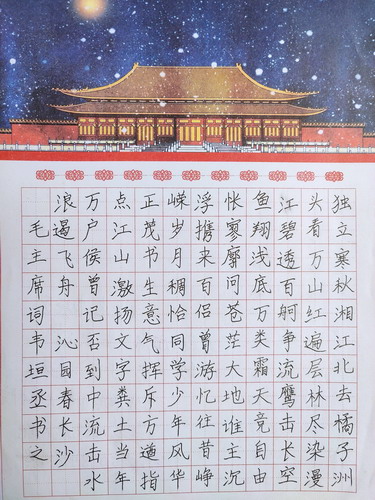 独立寒秋湘江北去橘子洲
头看万山红遍层林尽染漫
江碧透百舸争流鹰击长空
鱼翔浅底万类霜天竞自由
怅寥廓问苍茫大地谁主沉
浮携来百侣曾游忆往昔峥
嵘岁月稠恰同学少年风华
正茂书生意气挥斥方遒指
点江山激扬文字粪土当年
万户侯曾记否到中流击水
浪遏飞舟 沁园春长沙
毛主席词韦垣丞书之